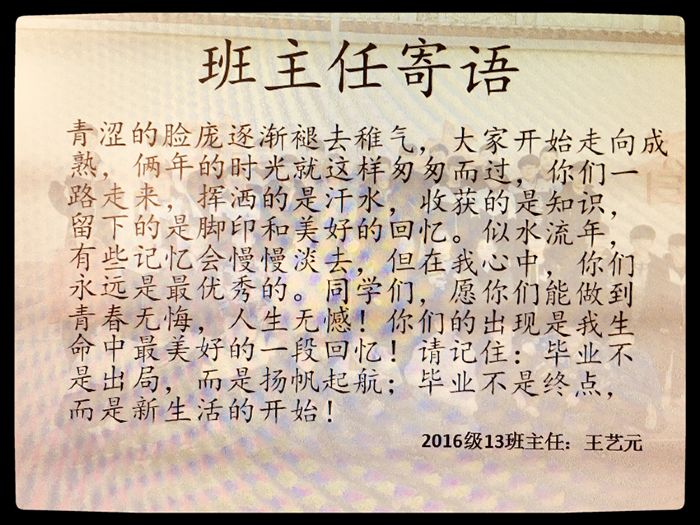 班主任寄语
青涩的脸庞逐渐褪去稚气，大家开始走向成
熟，俩年的时光就这样匆匆而过，你们一
路走来，挥洒的是汗水，收获的是知识，
留下的是脚印和美好的回忆。似水流年，
有些记忆会慢慢淡去，但在我心中，你们
永远是最优秀的。同学们，愿你们能做到
青春无悔，人生无憾！你们的出现是我生
命中最美好的一段回忆！请记住：毕业不
是出局，而是扬帆起航；毕业不是终点，
而是新生活的开始！
2016级13班主任：王艺元